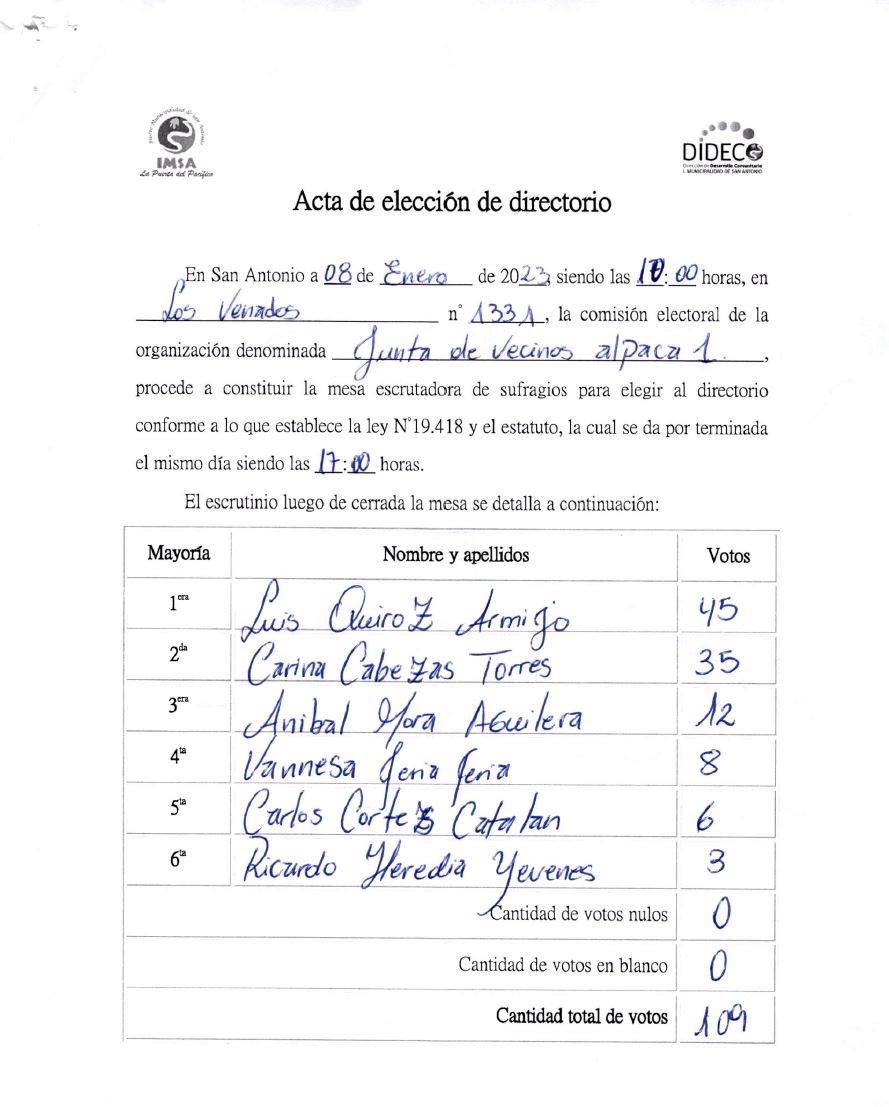 Ilustre Municipalidad de San Antonio
IMSA
La Puerta del Pacífico
DIDECO
Dirección de Desarrollo Comunitario
I. MUNICIPALIDAD DE SAN ANTONIO
Acta de elección de directorio
En San Antonio a 08 de Enero de 2023, siendo las 10:00 horas, en
Los Venados n° 1331, la comisión electoral de la
organización denominada Junta de Vecinos alpaca 1.,
procede a constituir la mesa escrutadora de sufragios para elegir al directorio
conforme a lo que establece la ley N°19.418 y el estatuto, la cual se da por terminada
el mismo día siendo las 17:00 horas.
El escrutinio luego de cerrada la mesa se detalla a continuación:
Mayoría Nombre y apellidos Votos
1era Luis Quiroz Armigo 45
2da Carina Cabezas Torres 35
3era Anibal Mora Aguilera 12
4ta Vannesa Jeria Jeria 8
5ta Carlos Cortez Catalan 6
6ta Ricardo Heredia Yevenes 3
Cantidad de votos nulos 0
Cantidad de votos en blanco 0
Cantidad total de votos 109